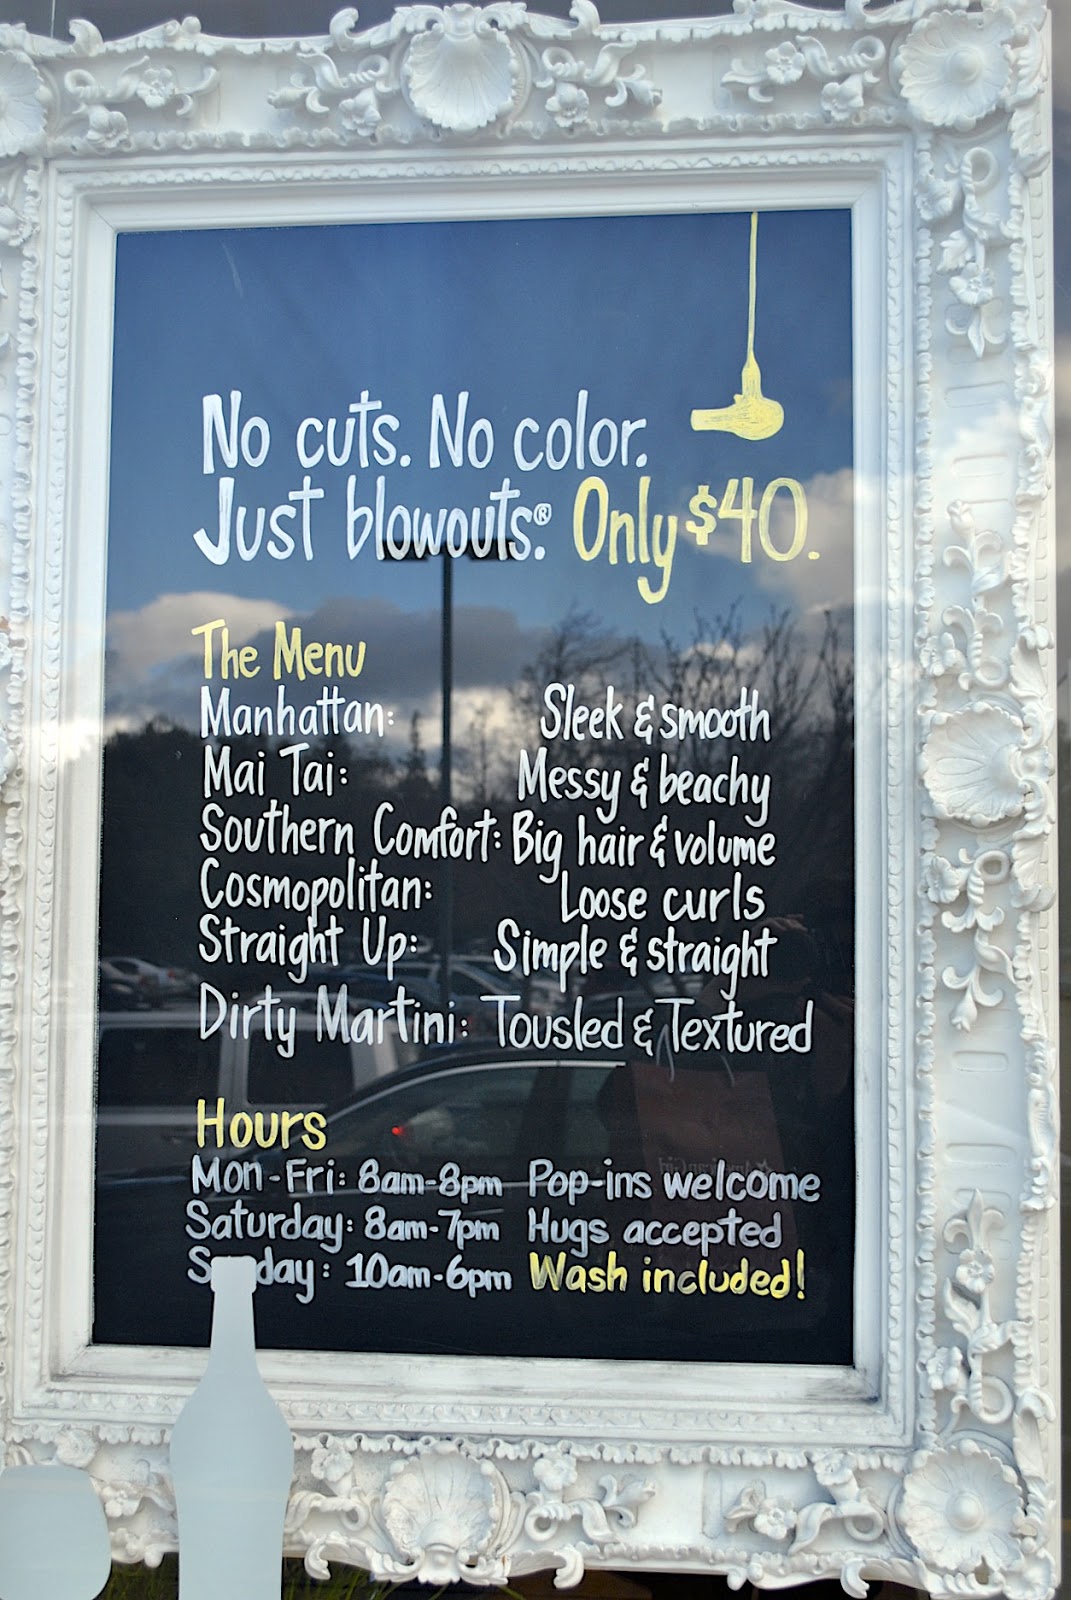 No cuts. No color.
Just blowouts.® Only $40.
The Menu
Manhattan: Sleek & smooth
Mai Tai: Messy & beachy
Southern Comfort: Big hair & volume
Cosmopolitan: Loose curls
Straight Up: Simple & straight
Dirty Martini: Tousled & Textured
Hours
Mon-Fri: 8am-8pm Pop-ins welcome
Saturday: 8am-7pm Hugs accepted
10am-6pm Wash included!